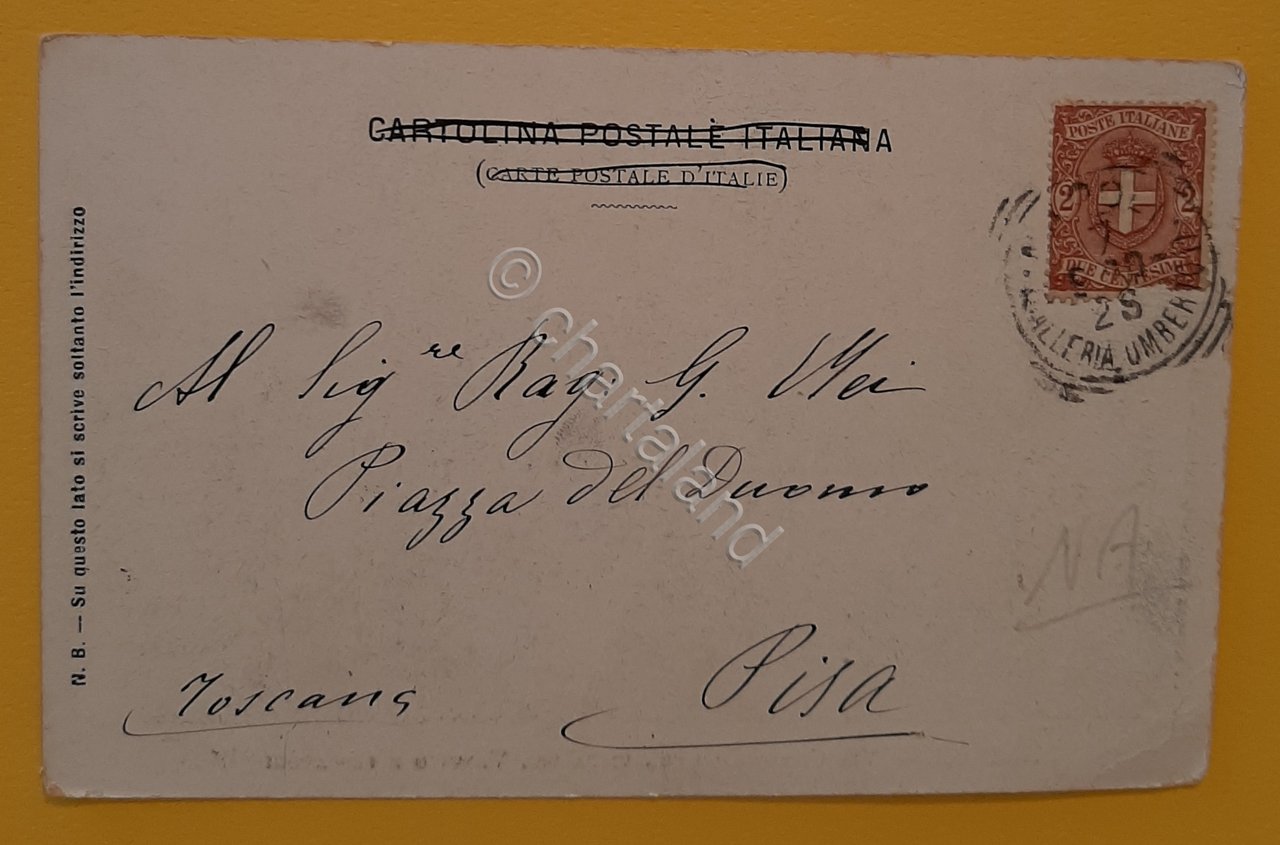 CARTOLINA POSTALE ITALIANA
(CARTE POSTALE D'ITALIE)
POSTE ITALIANE
2 2
DUE CENTESIMI
25
GALLERIA UMBERTO
N. B. — Su questo lato si scrive soltanto l'indirizzo
© Chartaland
Al Sig.re Rag. G. Mei
Piazza del Duomo
Pisa
Toscana
NA